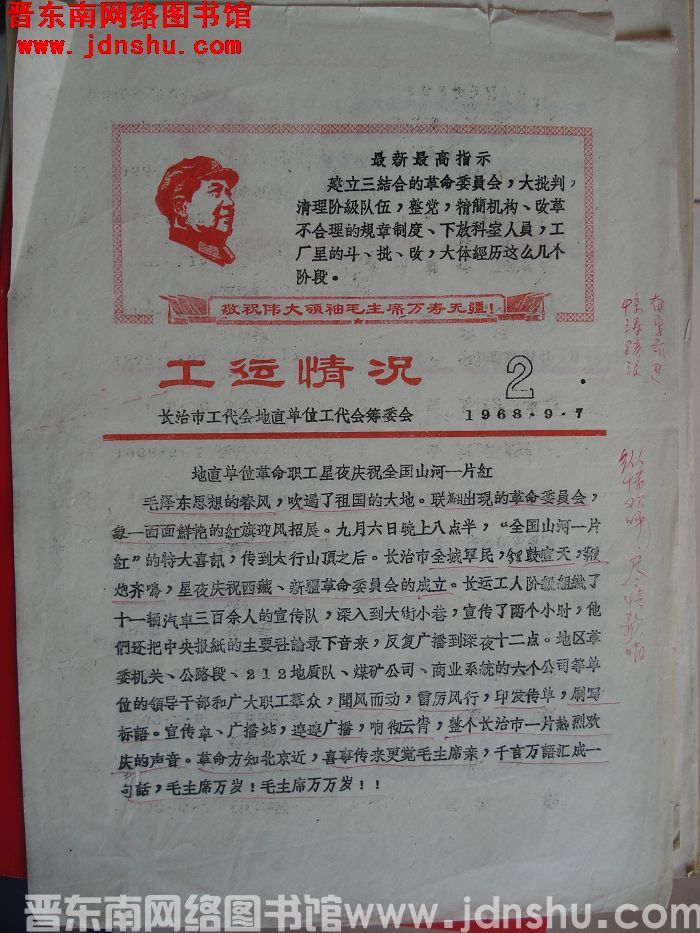 晋东南网络图书馆
www.jdnshu.com
最新最高指示
建立三結合的革命委員会，大批判，
清理阶級队伍，整党，精簡机构、改革
不合理的規章制度、下放科室人員，工
厂里的斗、批、改，大体經历这么几个
阶段。
敬祝伟大领袖毛主席万寿无疆！
工运情况
2
长治市工代会地直单位工代会筹委会
1968·9·7
地直单位革命职工星夜庆祝全国山河一片紅
毛泽东思想的春风，吹遍了祖国的大地。联翩出現的革命委員会，
象一面面鮮艳的紅旗迎风招展。九月六日晚上八点半，“全国山河一片
紅”的特大喜訊，传到太行山頂之后。长治市全城軍民，鑼鼓喧天，鞭
炮齐鳴，星夜庆祝西藏、新疆革命委員会的成立。长运工人阶級組織了
十一辆汽車三百余人的宣传队，深入到大街小巷，宣传了两个小时，他
們还把中央报紙的主要社論录下音来，反复广播到深夜十二点。地区革
委机关、公路段、212地质队、煤矿公司、商业系統的六个公司等单
位的領导干部和广大职工羣众，聞风而动，雷厉风行，印发传单，刷写
标語。宣传車、广播站，遍遍广播，响彻云霄，整个长治市一片热烈欢
庆的声音。革命方知北京近，喜事传来更觉毛主席亲，千言万語汇成一
句話，毛主席万岁！毛主席万万岁！！
晋东南网络图书馆 www.jdnshu.com